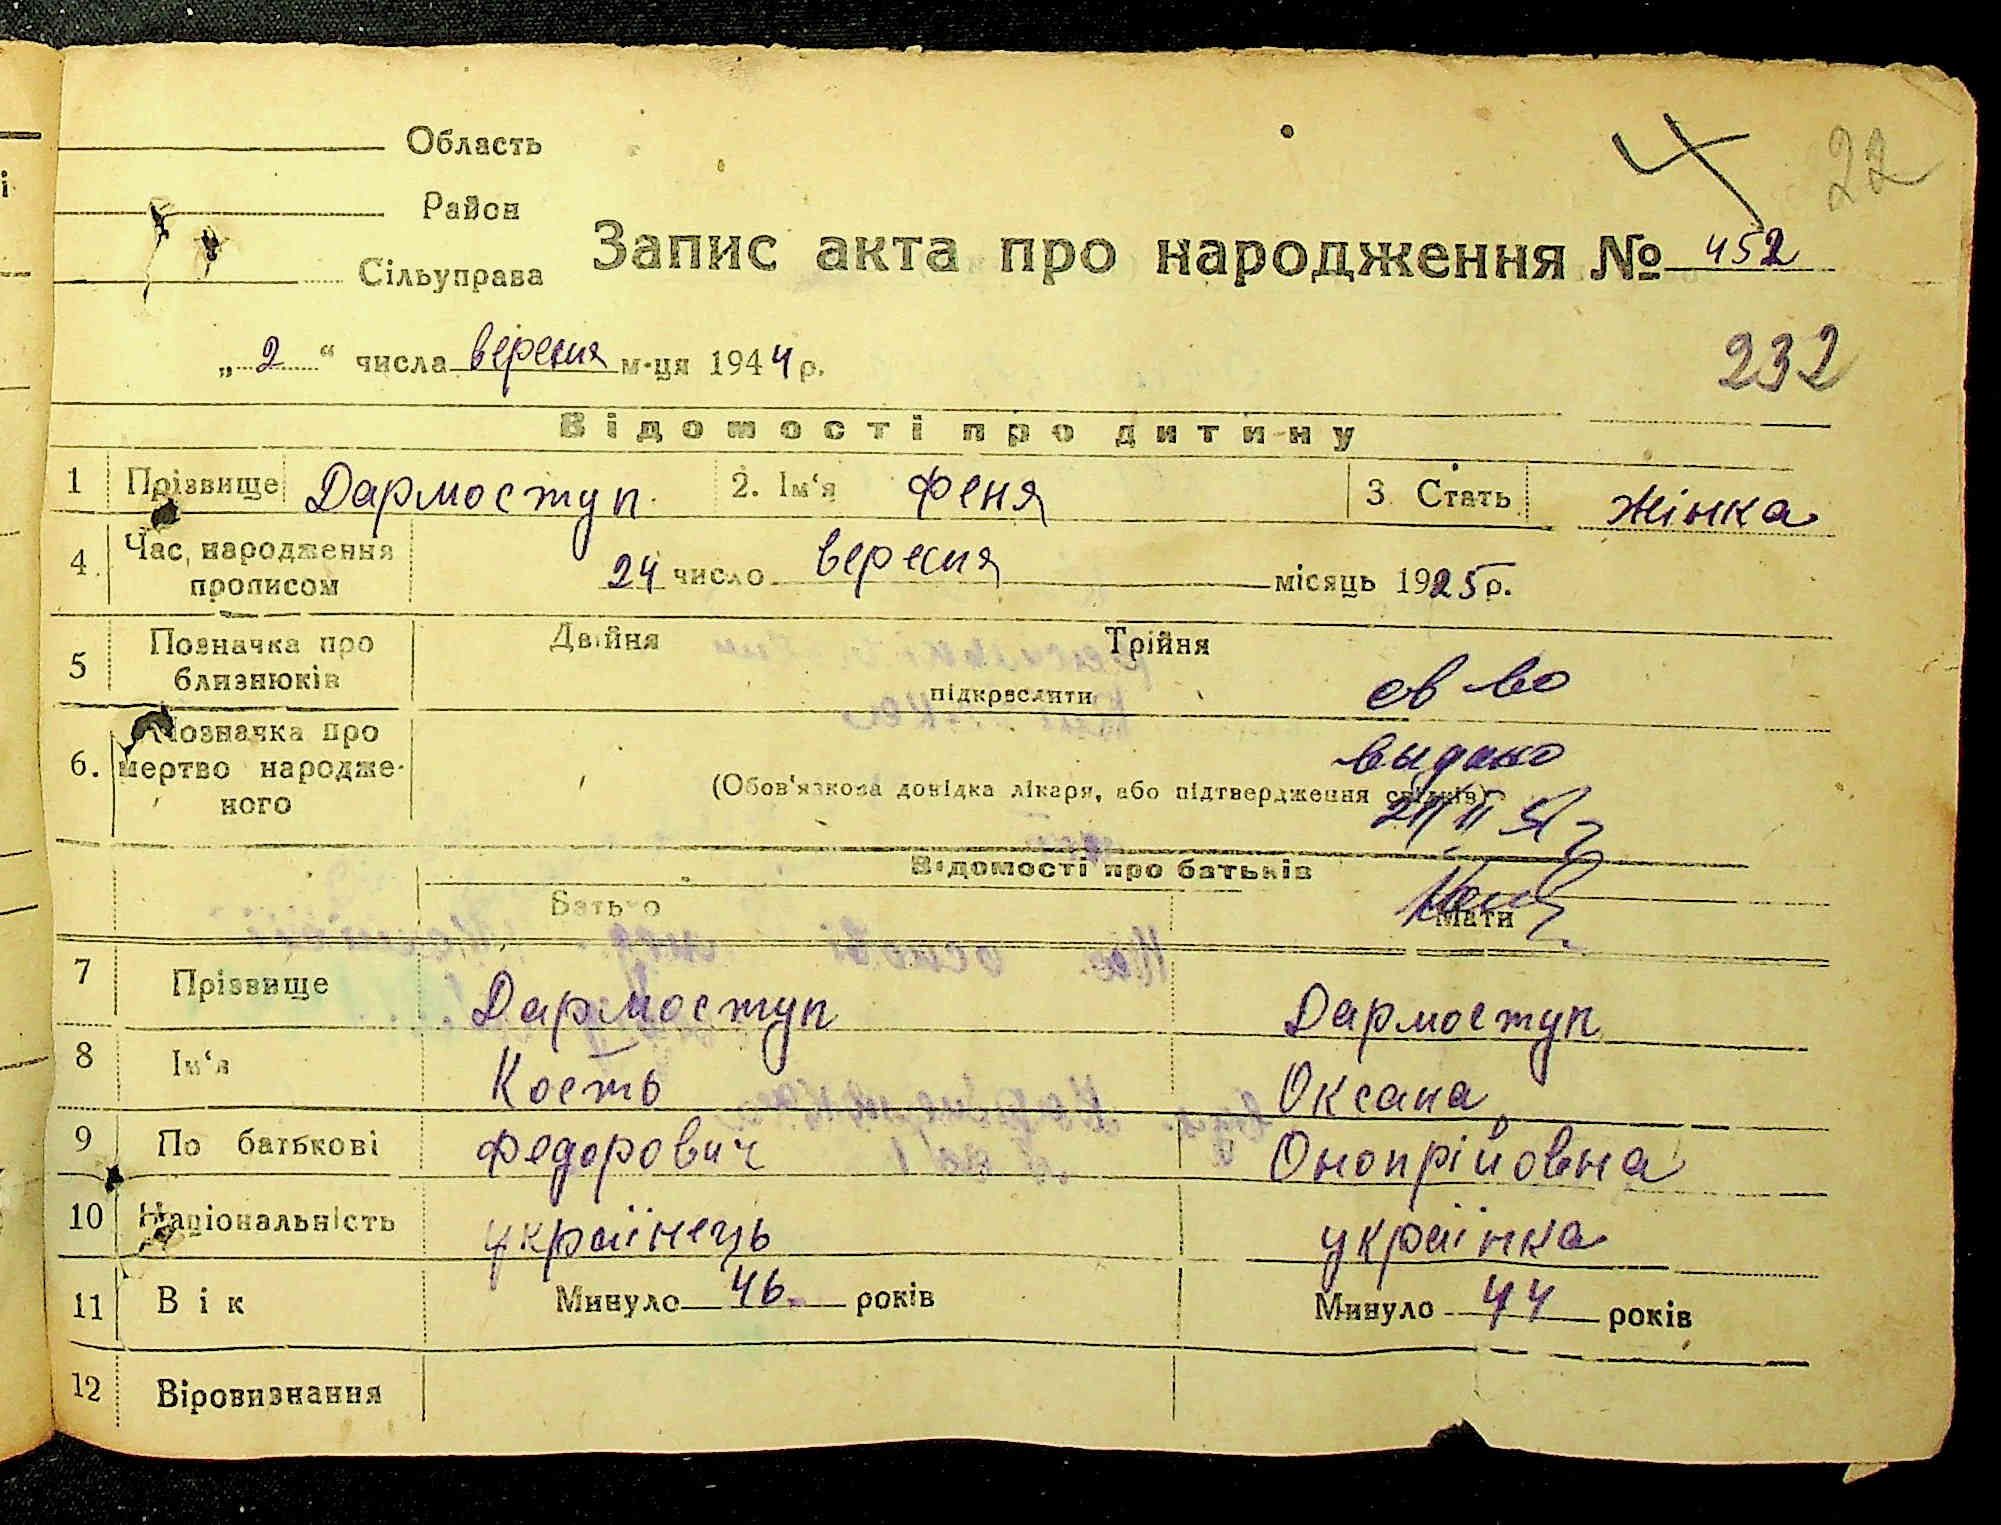 22
Область
Район
Сільуправа
Запис акта про народження № 452
„2“ числа вересня м-ця 1944 р.
232
Відомості про дитину
1 Прізвище Дармоступ. 2. Ім‘я Феня 3 Стать Жінка
4 Час народження прописом 24 число вересня місяць 1925 р.
5 Позначка про близнюків Двійня Трійня
підкреслити
св во
6. Позначка про мертво народженого
видано
(Обов‘язкова довідка лікаря, або підтвердження свідків)
Відомості про батьків
Батько Мати
7 Прізвище Дармоступ Дармоступ
8 Ім‘я Кость Оксана
9 По батькові Федорович Онопрійовна
10 Національність українець українка
11 Вік Минуло 46 років Минуло 44 років
12 Віровизнання